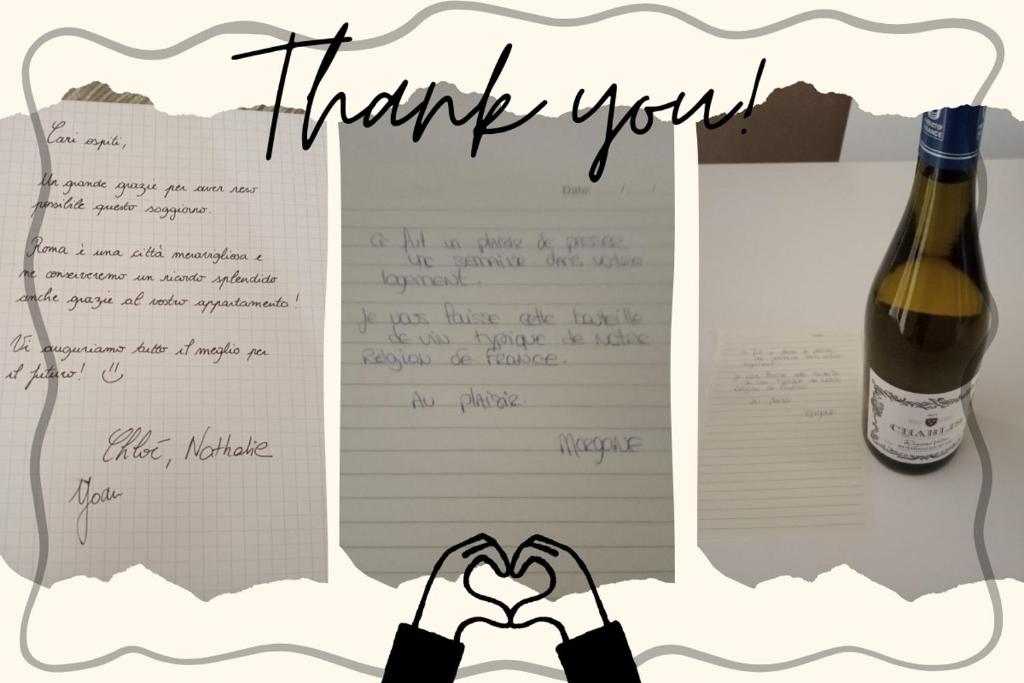 Thank you!
Cari ospiti,
Un grande grazie per aver reso
possibile questo soggiorno.
Roma è una città meravigliosa e
ne conserveremo un ricordo splendido
anche grazie al vostro appartamento!
Vi auguriamo tutto il meglio per
il futuro!
Chloé, Nathalie
Yoan
Date: / /
Ce fut un plaisir de passer
une semaine dans votre
logement.
Je vous laisse cette bouteille
de vin typique de notre
Région de France.
Au plaisir.
Morgane
FRANCE
CHABLIS